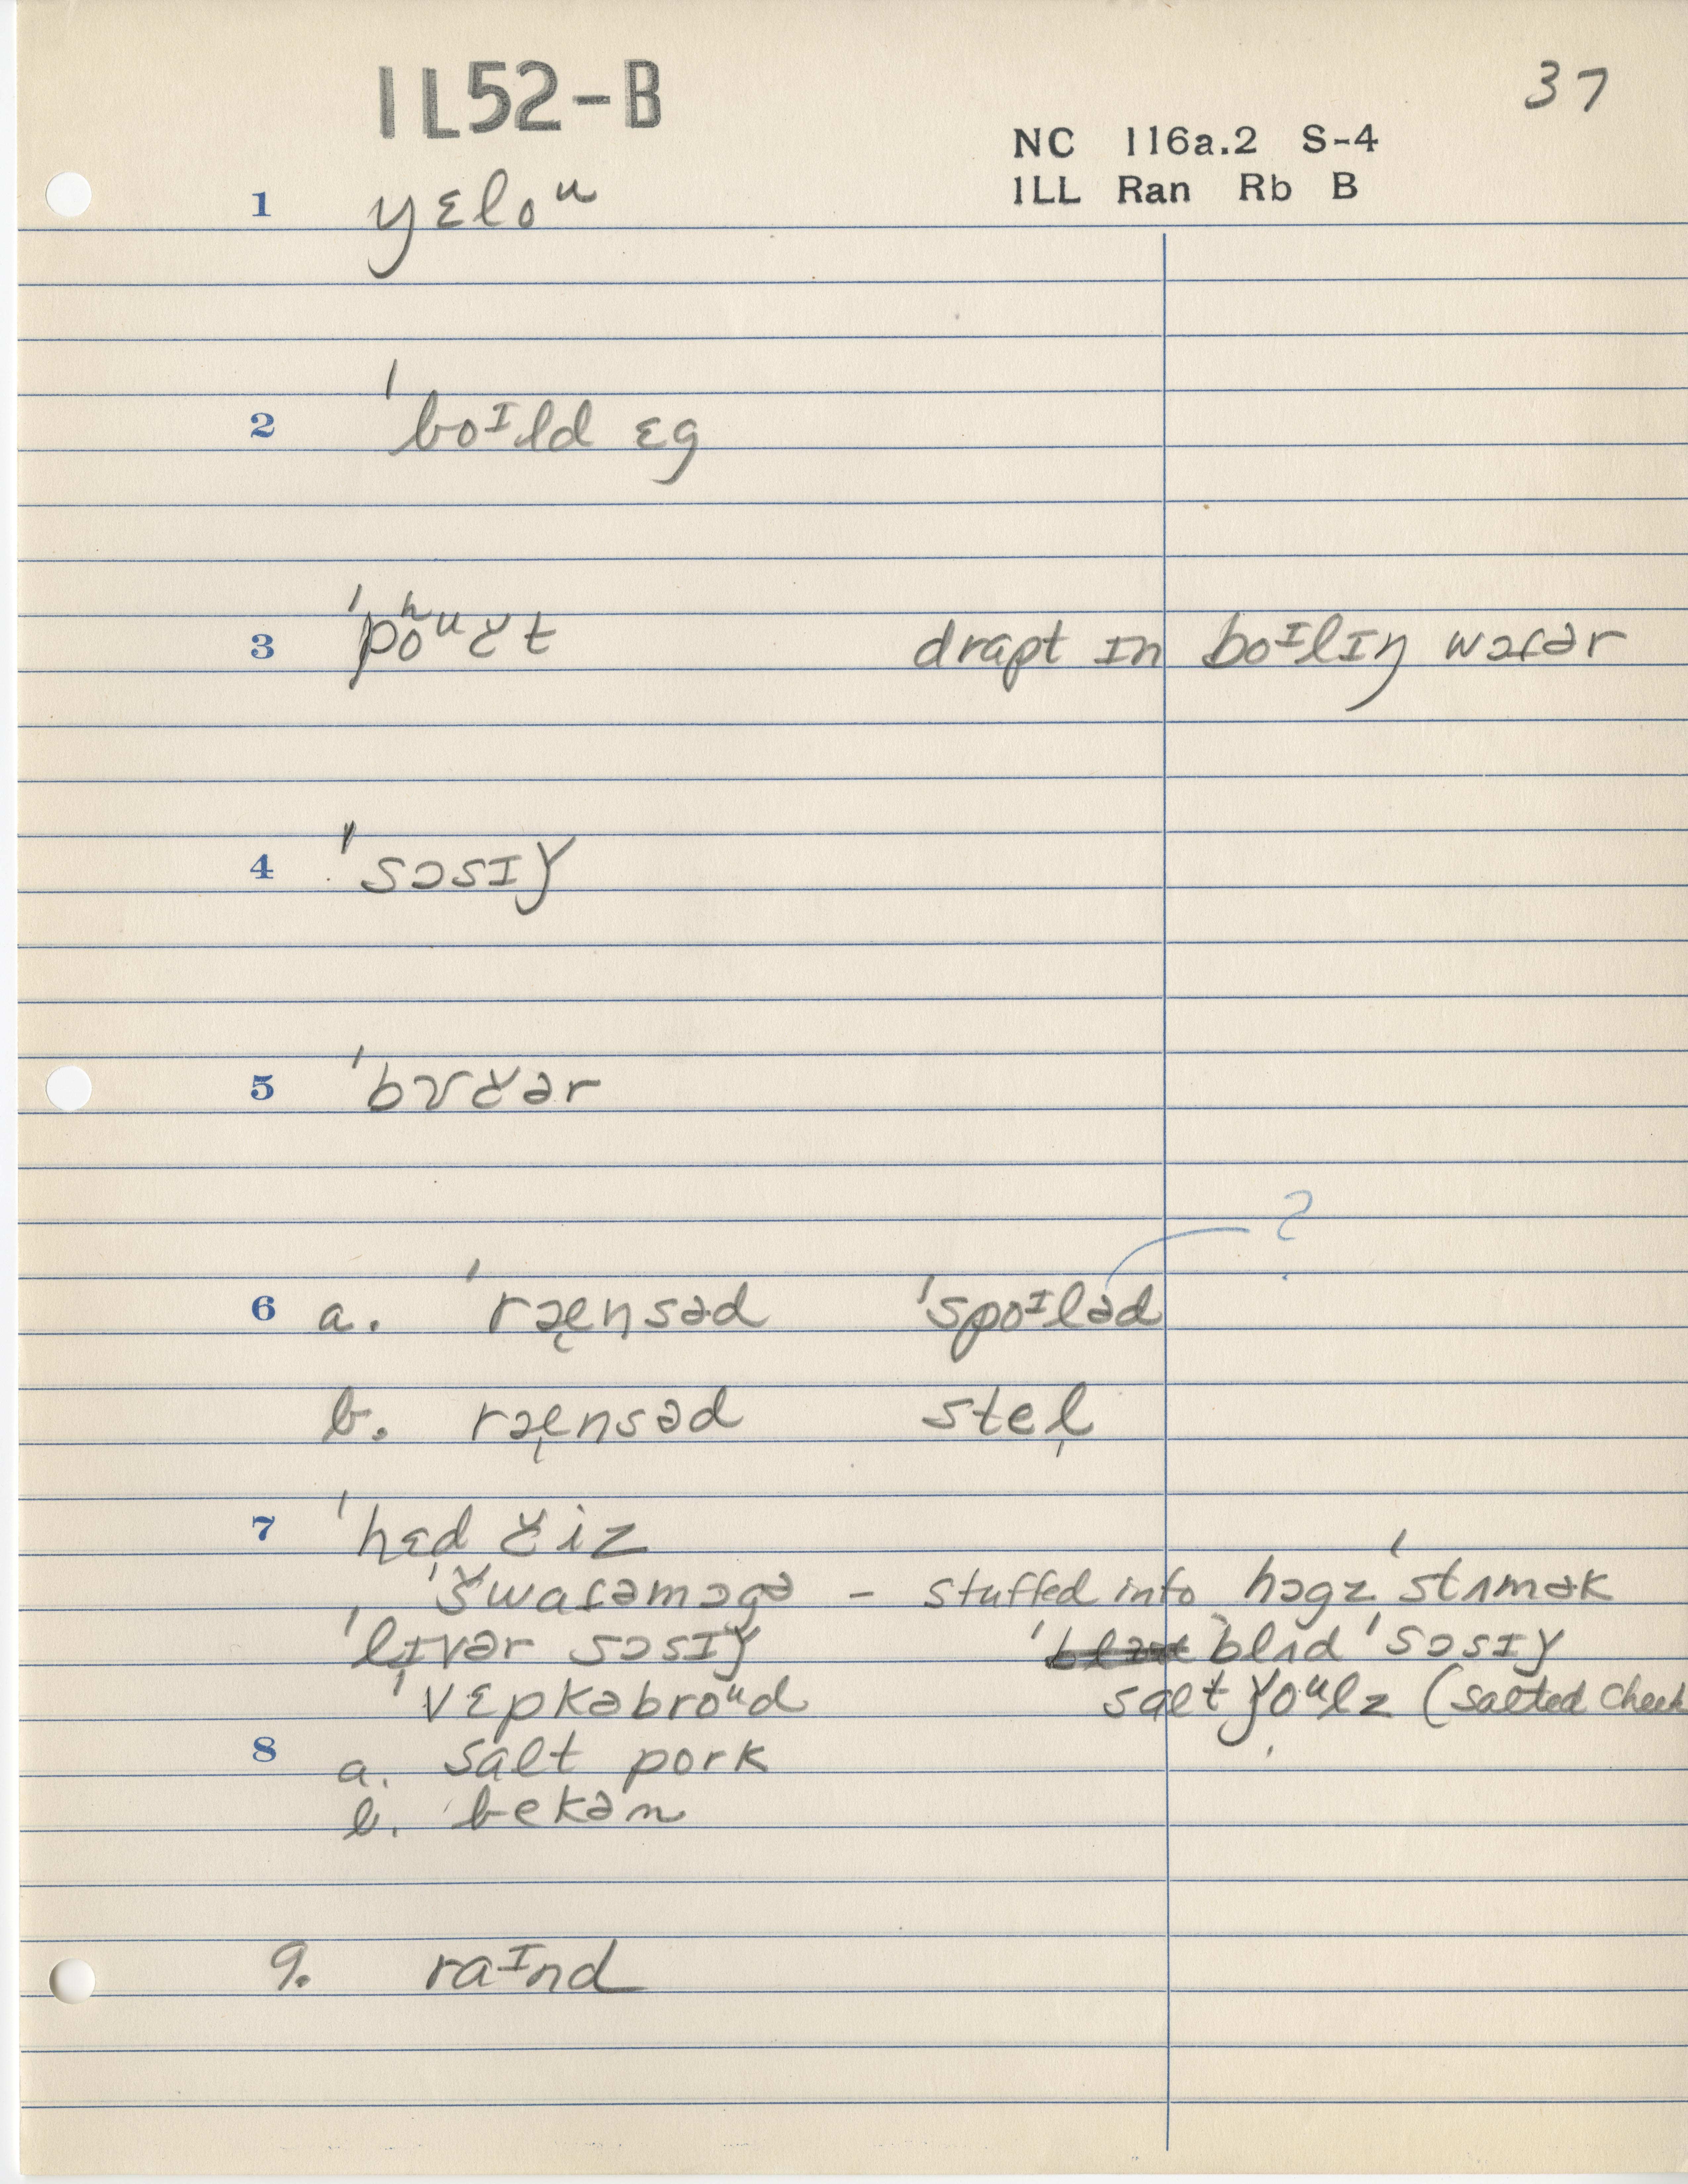 1L52-B
37
NC 116a.2 S-4
1LL Ran Rb B
1 yɛloᵘ
2 ˈboᴵld ɛg
3 ˈpʰoᵘčt drapt ɪn boᴵlɪŋ wɔɾər
4 ˈsɔsɪǰ
5 ˈbʊčər
?
6 a. ˈræ̨nsəd ˈspoᴵləd
b. ræ̨nsəd stel̩
7 ˈhɛd čiz
ˈšwaɾəmɔgə – stuffed into hɔgz ˈstʌmək
ˈlɪvər sɔsɪǰ ˈblʌd ˈsɔsɪǰ
ˈvɛpkəbroᵘd salt ǰoᵘlz (salted cheek
8 a. salt pork
b. bekən
9. raᴵnd